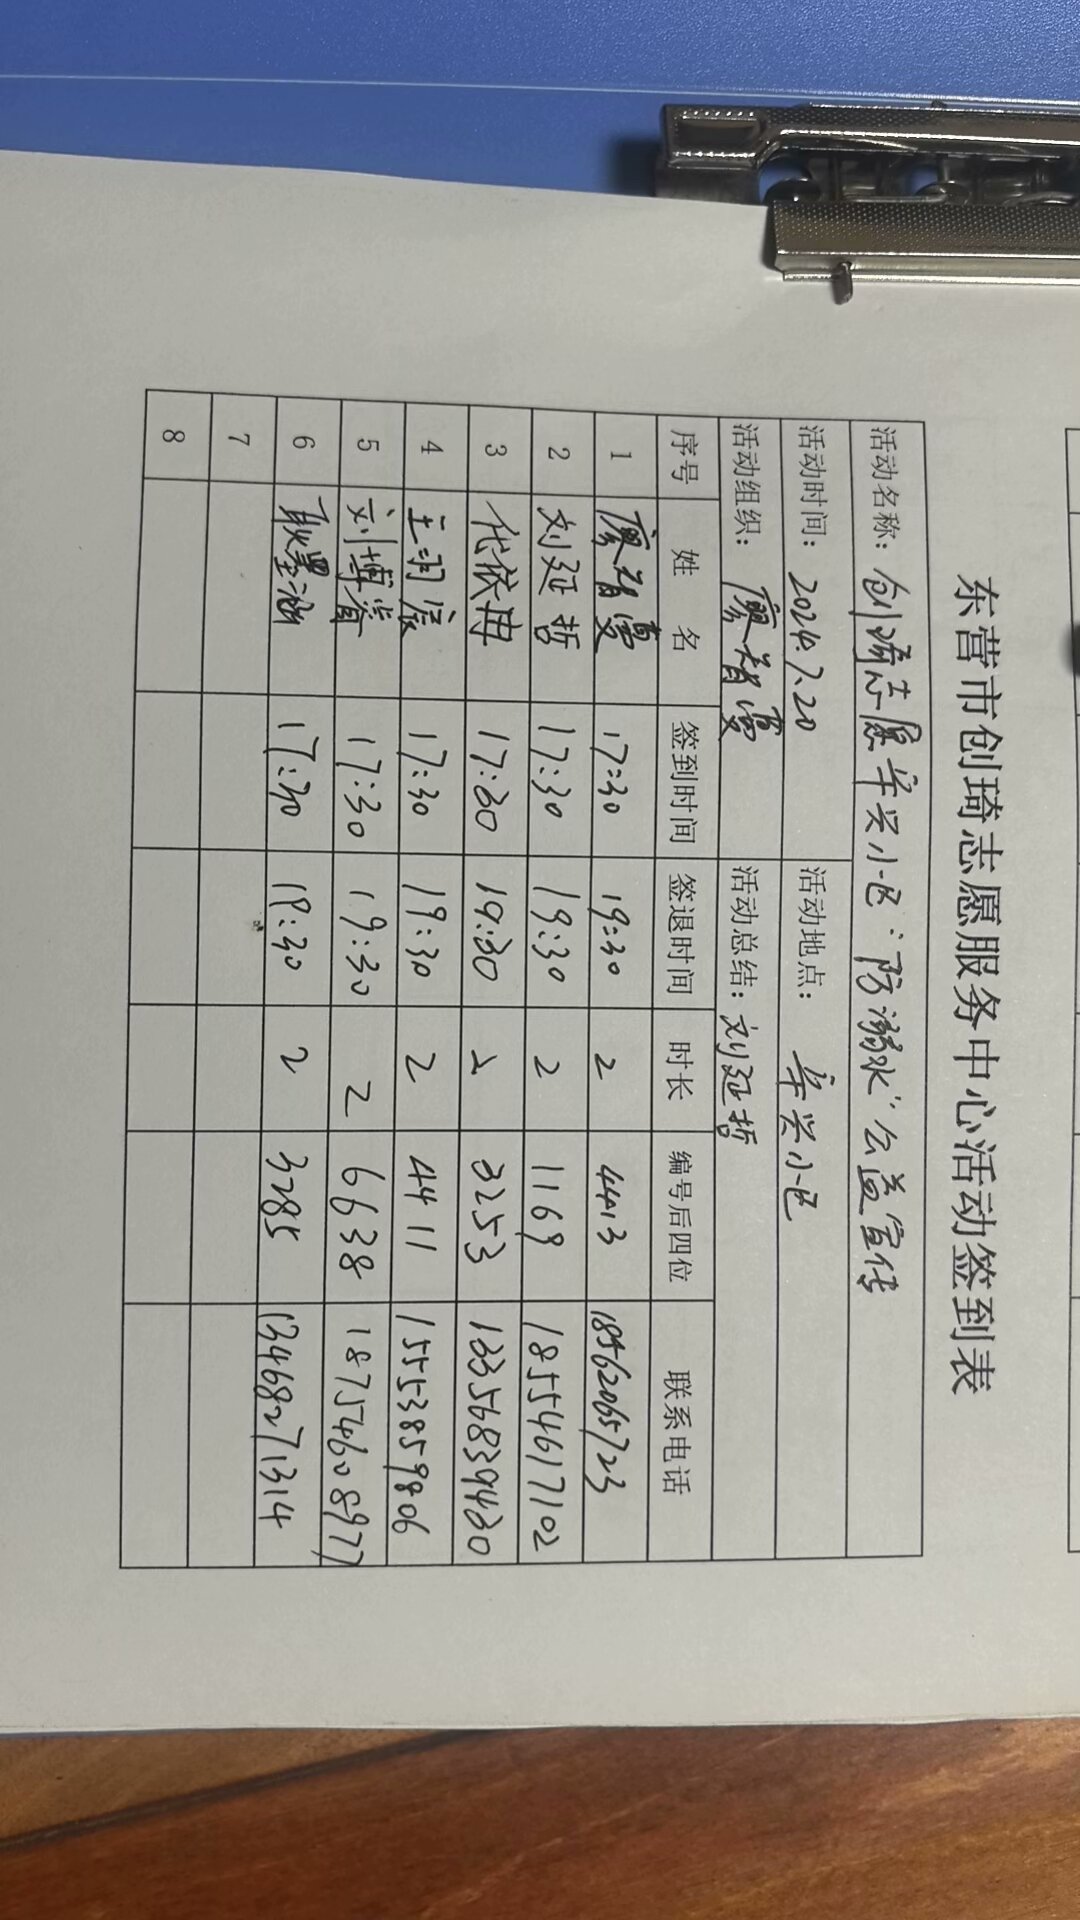 东营市创琦志愿服务中心活动签到表
活动名称：创琦志愿辛兴小区：防溺水"公益宣传
活动时间：2024.7.20 活动地点：辛兴小区
活动组织：廖智勇 活动总结：刘延哲
序号 姓 名 签到时间 签退时间 时长 编号后四位 联系电话
1 廖智勇 17:30 19:30 2 4413 18562065723
2 刘延哲 17:30 19:30 2 1169 18554617102
3 代依冉 17:30 19:30 2 3253 13356839430
4 王羽宸 17:30 19:30 2 4411 15553859806
5 刘博睿 17:30 19:30 2 6638 18754608977
6 耿墨涵 17:30 19:30 2 3285 13468271314
7
8